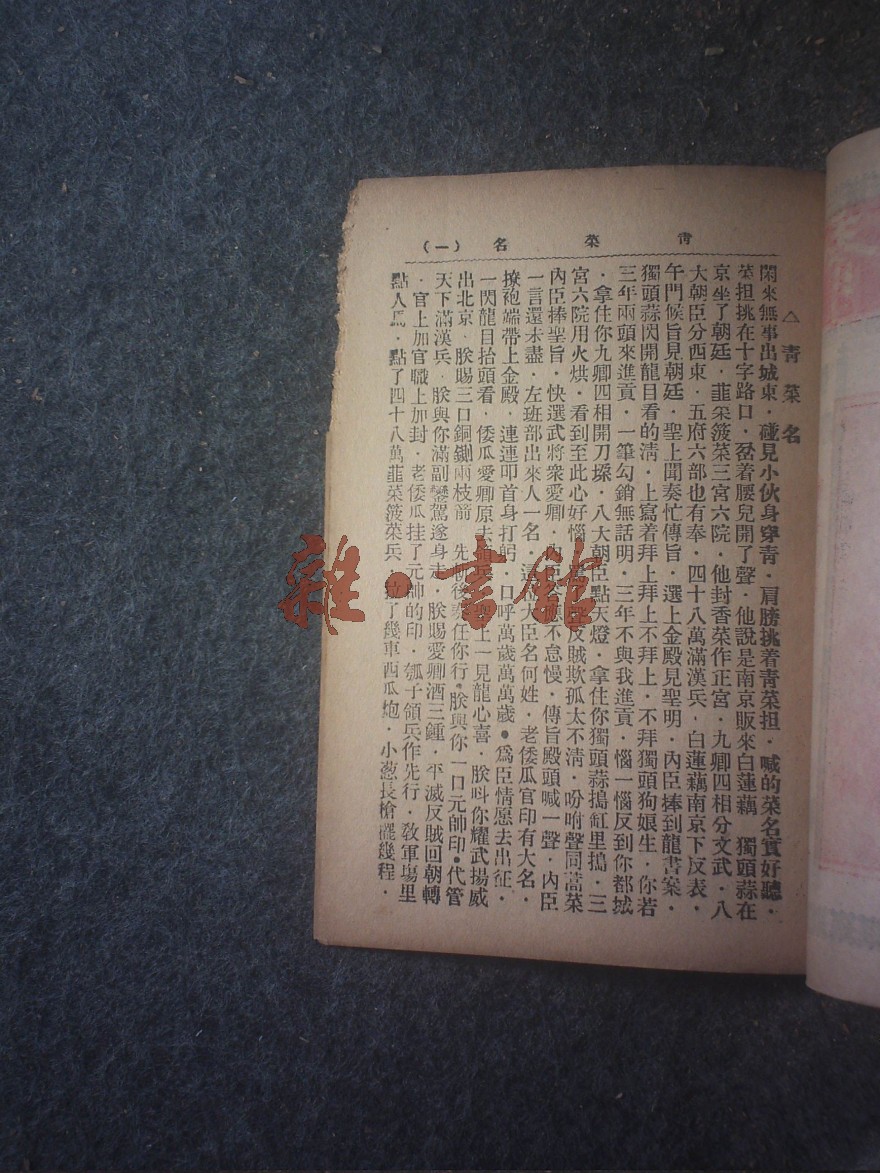 青菜名 (一)
△青菜名
閑來無事出城東．碰見小伙身穿青．肩膀挑着青菜担．喊的菜名實好聽．
菜担挑在十字路口．岔着腰兒開了聲．他說是南京販來白蓮藕 獨頭蒜在
京坐了朝廷．韮菜菠菜三宮六院．他封香菜作正宮．九卿四相分文武．八
大朝臣分西東．五府六部也有奉．四十八萬滿漢兵．白蓮藕南京下反表．
午門候旨見朝廷．聖上聞奏忙傳旨．選上金殿見聖明．內臣捧到龍書案．
獨頭蒜閃開龍目看的清．上寫着拜上拜上不拜上．不拜獨頭狗娘生．你若
三年兩頭來進貢．一筆勾銷無話明．三年不與我進貢．惱一惱反到你都城
．拿住你九卿四相開刀埰．八大朝臣點天燈．拿住你獨頭蒜搗缸里搗．三
宮六院用火烘．看到至此心好惱 聲反賊欺孤太不清．吩咐聲同蒿菜
內臣捧聖旨．快選武將衆愛卿．內臣 應不怠慢．傳旨殿頭喊一聲．內臣
一言還未盡．左班部出來人一名．這 大臣名何姓．老倭瓜官印有大名．
撩袍端帶上金殿．連連叩首身打躬．口呼萬歲萬萬歲●爲臣情愿去出征．
一閃龍目抬頭看．倭瓜愛卿原去領兵．聖上一見龍心喜．朕呌你耀武揚威
出北京．朕賜三口銅鍘兩枝箭 先 後 任你行●朕與你一口元帥印●代管
天下滿漢兵．朕與你滿副鑾駕遂身走．朕賜愛卿酒三鍾．平滅反賊回朝轉
．官上加官職上加封．老倭瓜挂了元帥的印．瓠子領兵作先行．敎軍塲里
點人馬．點了四十八萬韮菜菠菜兵 拉了幾車西瓜炮．小葱長槍擺幾程．
雜·書館